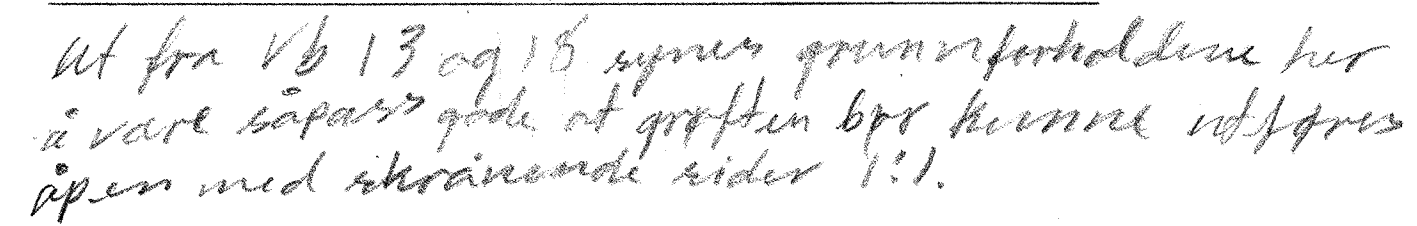 Ut fra Vb 13 og 18 synes grunnforholdene her
å være såpass gode at grøften bør kunne utføres
åpen med skrånende sider 1:1.